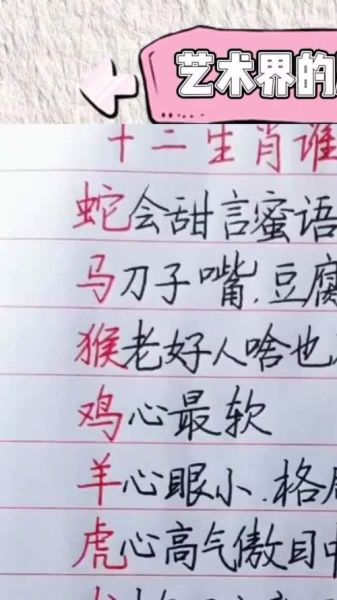 艺术界的
十二生肖谁
蛇会甜言蜜语
马刀子嘴.豆腐
猴老好人啥也
鸡心最软
羊心眼小.格局
虎心高气傲目中